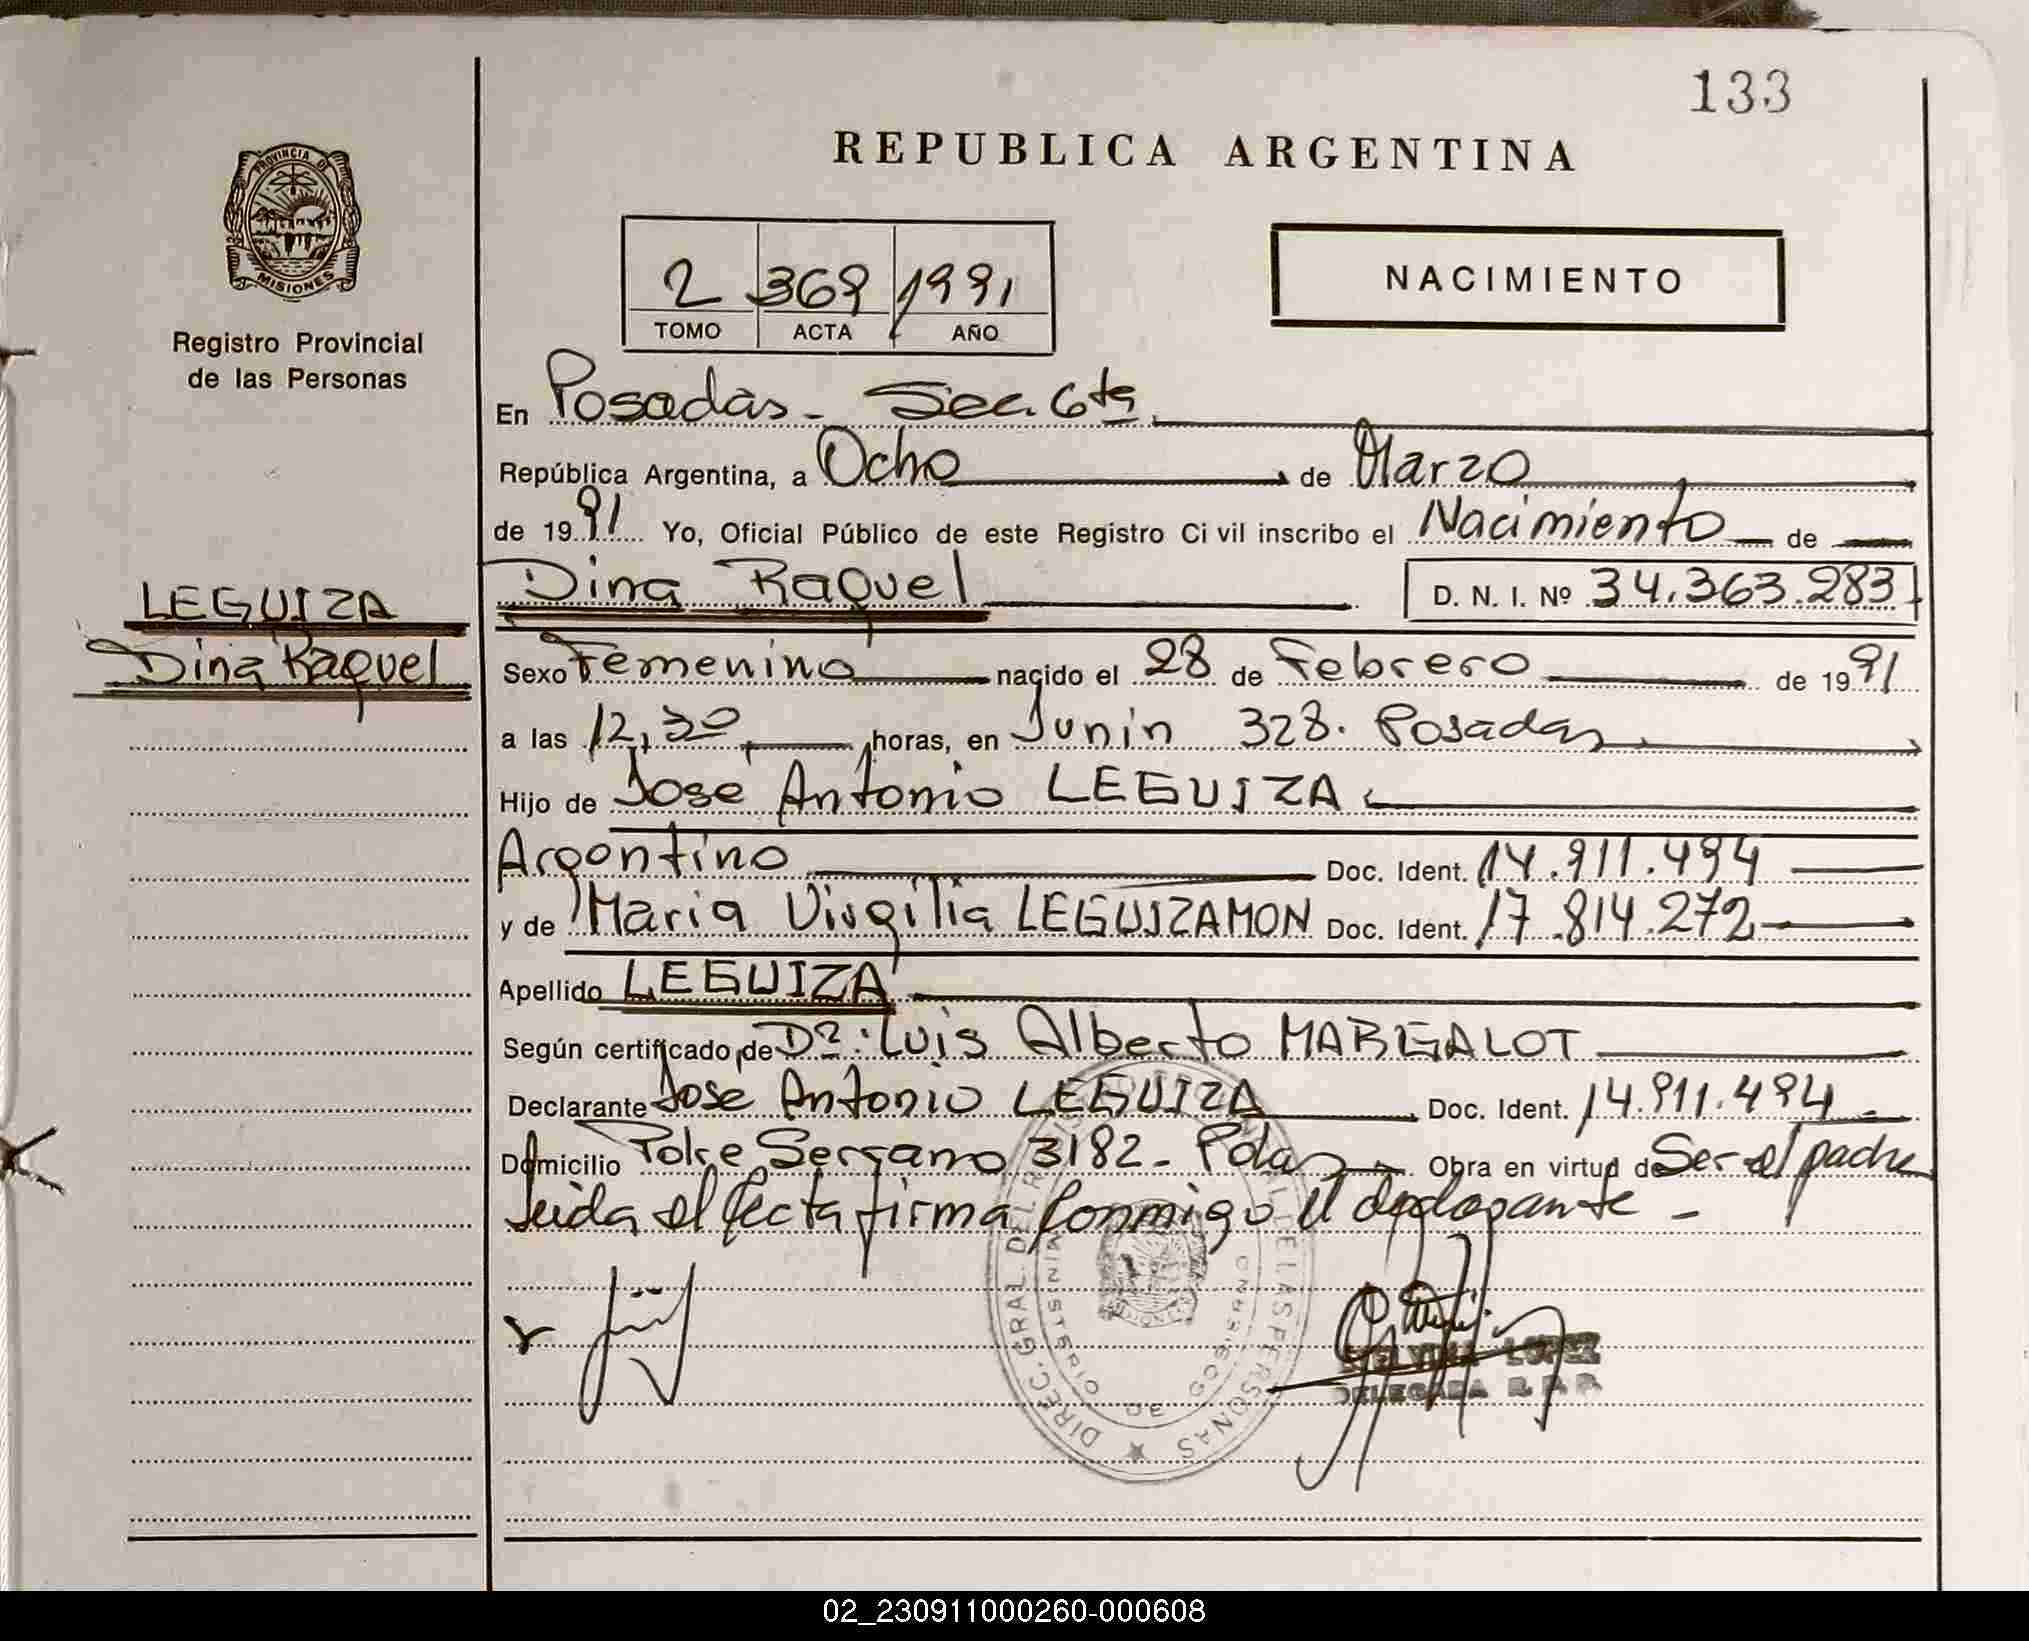 133
REPUBLICA ARGENTINA
PROVINCIA DE
MISIONES
Registro Provincial
de las Personas
2 369 1991
TOMO ACTA AÑO
NACIMIENTO
En Posadas - Sec. 6ta
República Argentina, a Ocho de Marzo
de 1991 Yo, Oficial Público de este Registro Civil inscribo el Nacimiento de
LEGUIZA
Dina Raquel
Dina Raquel D. N. I. Nº 34.363.283
Sexo Femenino nacido el 28 de Febrero de 1991
a las 12,30 horas, en Junin 328. Posadas
Hijo de Jose Antonio LEGUIZA
Argentino Doc. Ident. 14.911.494
y de Maria Virgilia LEGUIZAMON Doc. Ident. 17.814.272
Apellido LEGUIZA
Según certificado de Dr: Luis Alberto MARGALOT
Declarante Jose Antonio LEGUIZA Doc. Ident. 14.911.494
Domicilio Serrano 3182 - Pdas Obra en virtud de Ser el padre
leida el acta firma conmigo el declarante -
DIREC. GRAL. DEL REGISTRO PROVINCIAL DE LAS PERSONAS
MINISTERIO DE GOBIERNO
LOPEZ
DELEGADA R. P. P.
02_230911000260-000608